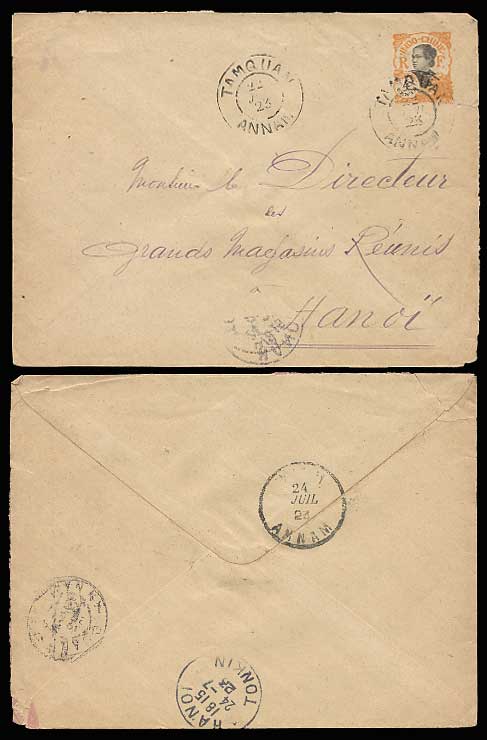 TAMQUAN
22
23
ANNAM
INDO-CHINE
R F
TAMQUAN
23
ANNAM
Monsieur le Directeur
des
Grands Magasins Réunis
à
Hanoï
24
JUIL
23
ANNAM
HANOI
18 15
24 -7
23
TONKIN